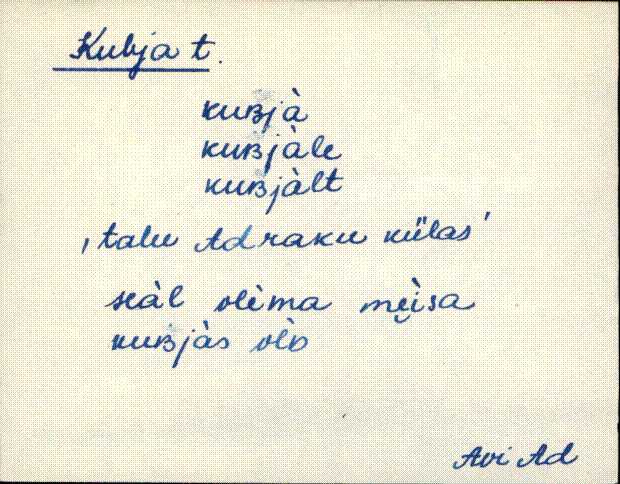 Kubja t.
kuʙjà
kuʙjàle
kuʙjàlt
‚talu Adraku külas’
seàl olèma mèi̯sa
kuʙjàs olò
Avi Ad